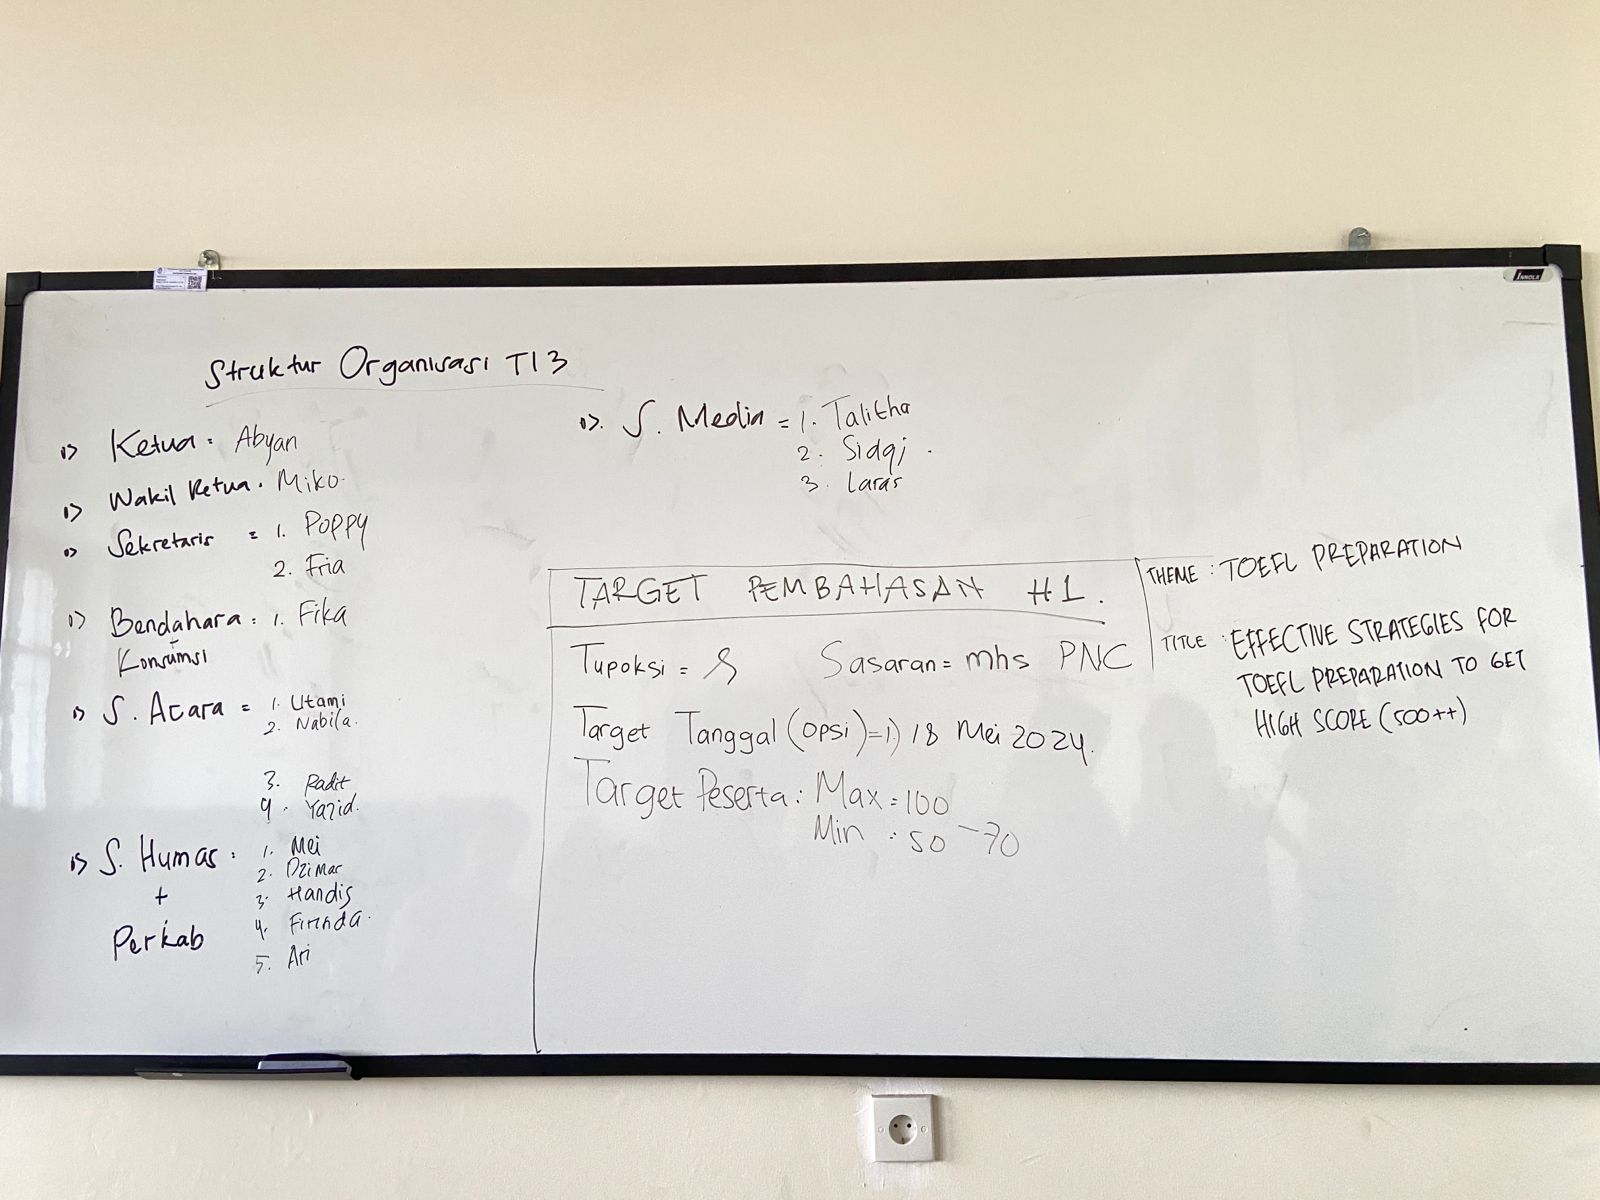 INNOLA
Struktur Organisasi TI 3
1> Ketua : Abyan
1> Wakil Ketua . Miko.
1> Sekretaris = 1. Poppy
2. Fria
1> Bendahara : 1. Fika
+
Konsumsi
1> S. Acara = 1. Utami
2. Nabila.
3. Radit
4. Yazid.
1> S. Humas : 1. Mei
2. Dzimar
+
3. Handis
4. Firinda.
Perkab
5. Ari
1>. S. Media = 1. Talitha
2. Sidqi .
3. Laras
TARGET PEMBAHASAN #1.
Tupoksi = Sasaran = mhs PNC
Target Tanggal (opsi) = 1) 18 Mei 2024.
Target Peserta : Max = 100
Min : 50 - 70
THEME : TOEFL PREPARATION
TITLE : EFFECTIVE STRATEGIES FOR
TOEFL PREPARATION TO GET
HIGH SCORE (500++)